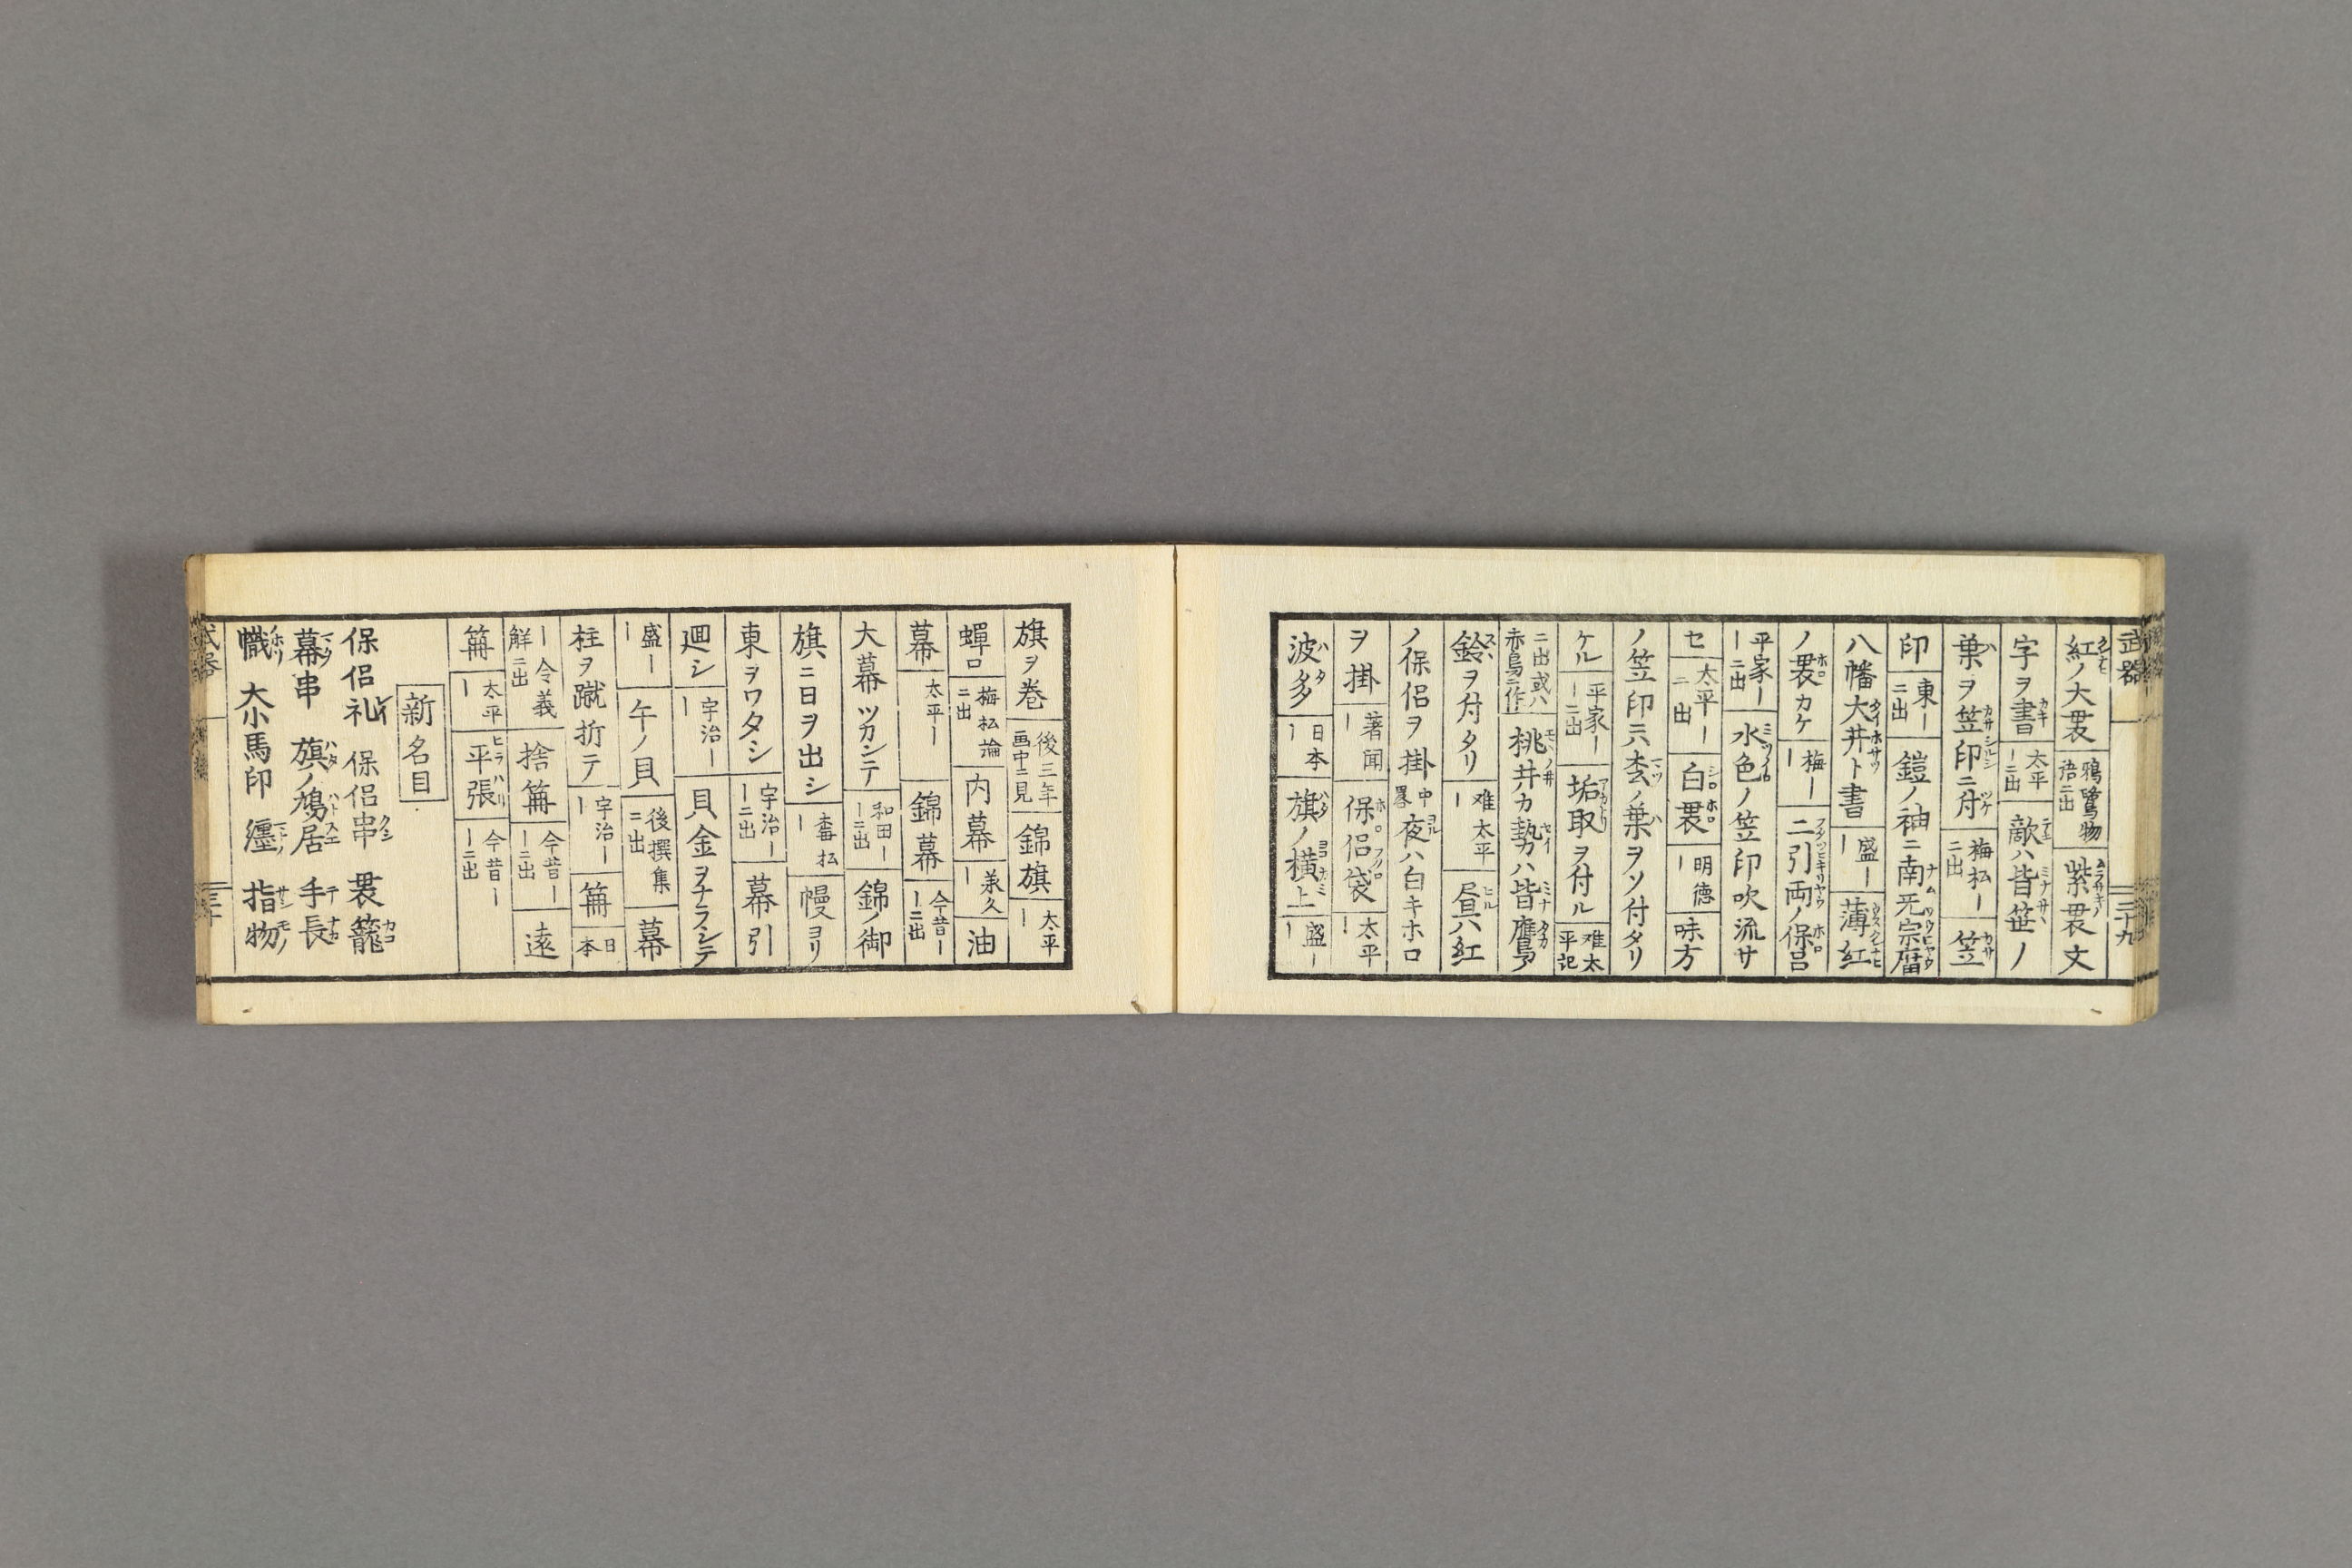 武器 三十九
紅ノ大裠 鴉鷺物語ニ出 紫裠文
字ヲ書 太平ーニ出 敵ハ皆笹ノ
葉ヲ笠印ニ付 梅松ーニ出 笠
印 東ーニ出 鎧ノ袖ニ南无宗廟
八幡大井ト書 盛ー 薄紅
ノ裠カケ 梅ー 二引両ノ保呂
平家ーニ出 水色ノ笠印吹流サ
セ 太平ーニ出 白裠 明徳ー 味方
ノ笠印ニ六枩ノ葉ヲソ付タリ
ケル 平家ーニ出 垢取ヲ付ル 难太平記
ニ出或ハ赤鳥ニ作 桃井カ勢ハ皆鷹
鈴ヲ付タリ 难太平ー 昼ハ紅
ノ保侶ヲ掛 中畧 夜ハ白キホロ
ヲ掛 著聞ー 保侶袋 太平ー
波多 日本ー 旗ノ横上 盛ー
旗ヲ巻 後三年画中ニ見 錦旗 太平ー
蟬口 梅松論ニ出 内幕 承久ー 油
幕 太平ー 錦幕 今昔ーニ出
大幕ツカンテ 和田ーニ出 錦ノ御
旗ニ日ヲ出シ 梅松ー 幔ヨリ
東ヲワタシ 宇治ーニ出 幕引
廻シ 宇治ー 貝金ヲナラシテ
盛ー 午ノ貝 後撰集ニ出 幕
柱ヲ蹴折テ 宇治ー 篝 日本
ー令義解ニ出 捨篝 今昔ーニ出 遠
篝 太平ー 平張 今昔ーニ出
新名目
保侶礼 保侶串 裠籠
幕串 旗ノ鳩居 手長
幟 大小馬印 纒 指物
武器 三十